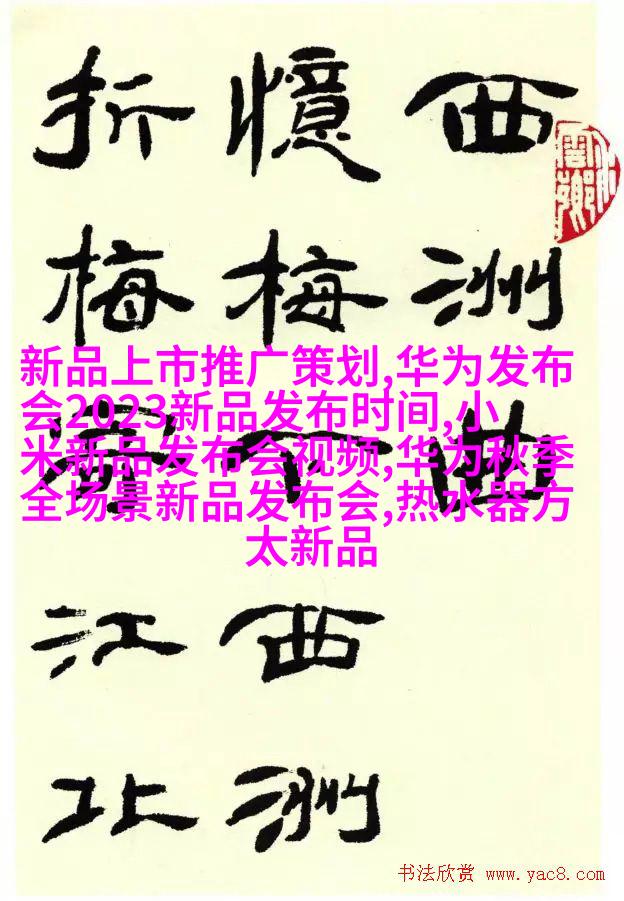 西洲曲
憶梅下西洲
折梅寄江北
新品上市推广策划,华为发布
会2023新品发布时间,小
米新品发布会视频,华为秋季
全场景新品发布会,热水器方
太新品
书法欣赏 www.yac8.com